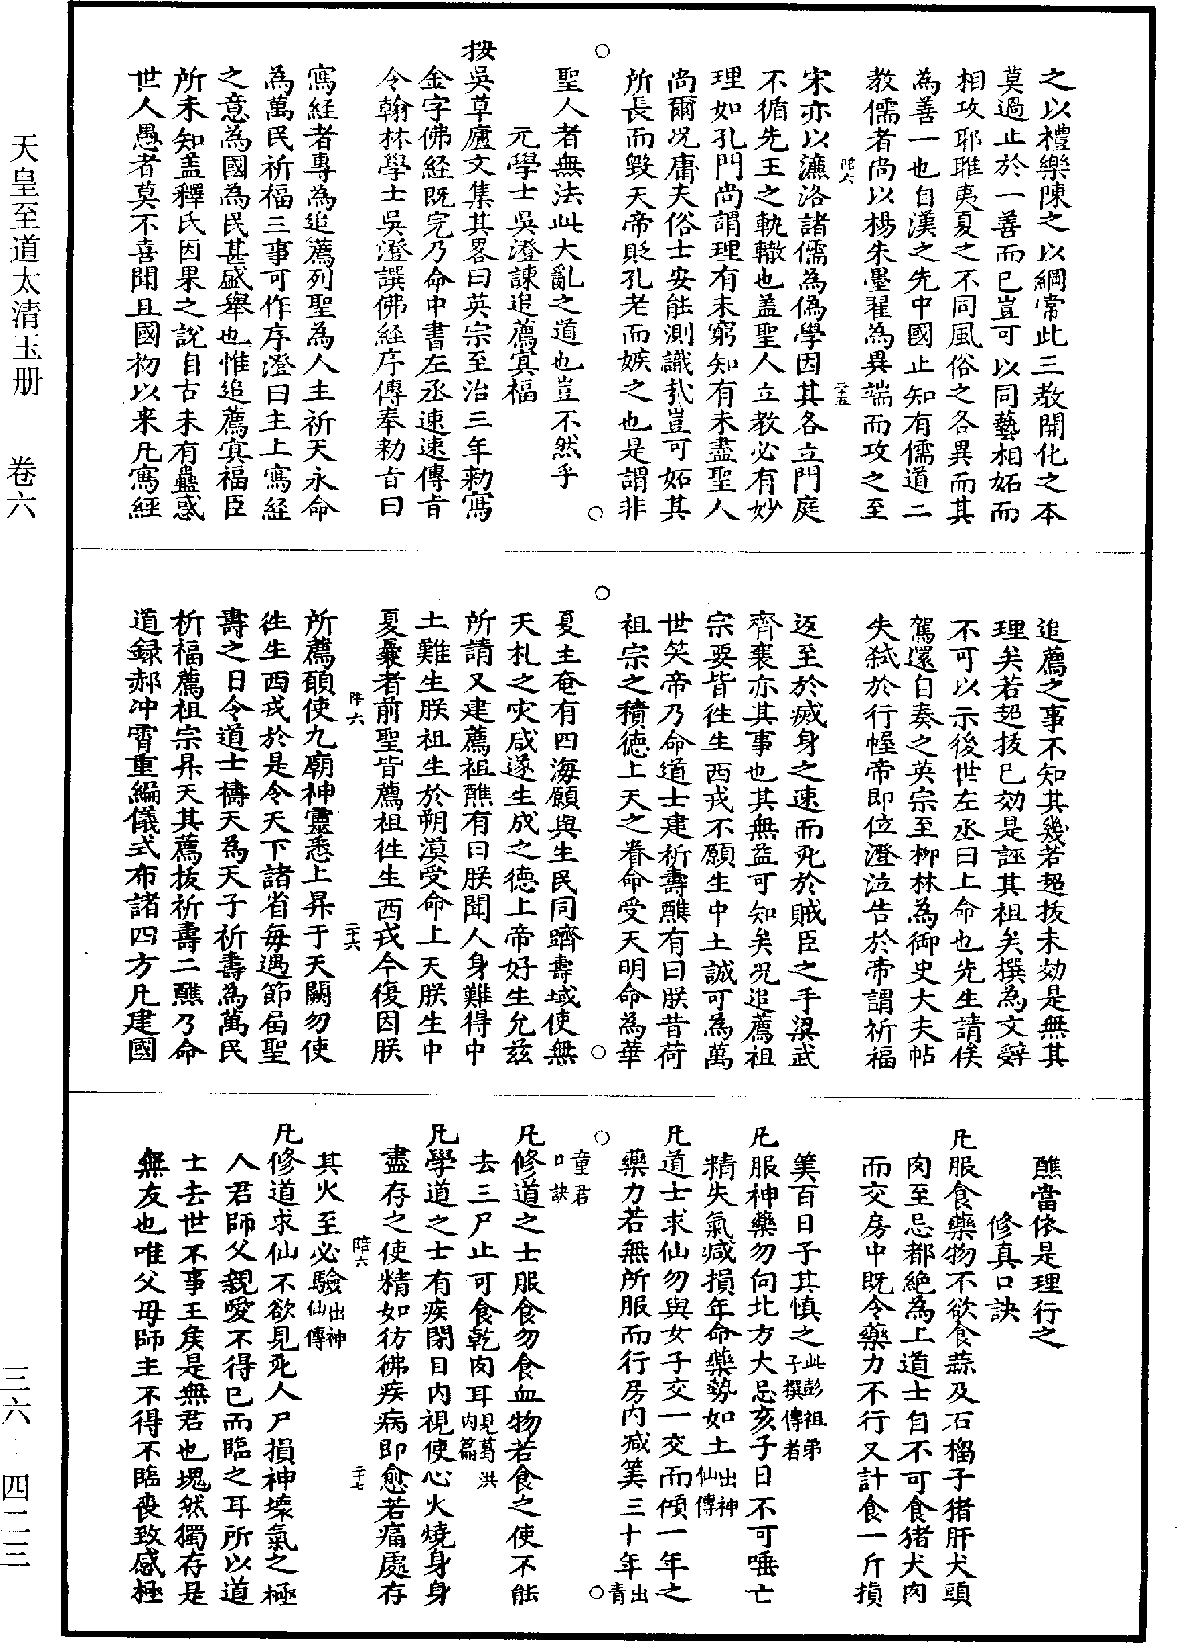 之以禮樂陳之以綱常此三教開化之本
莫過止於一善而已豈可以同藝相妬而
相攻耶雖夷夏之不同風俗之各異而其
為善一也自漢之先中國止知有儒道二
教儒者尚以楊朱墨翟為異端而攻之至
宋亦以濂洛諸儒為偽學因其各立門庭
不循先王之軌轍也盖聖人立教必有妙
理如孔門尚謂理有未窮知有未盡聖人
尚爾况庸夫俗士安能測識㢤豈可妬其
所長而毀天帝貶孔老而嫉之也是謂非
聖人者無法此大亂之道也豈不然乎
元學士吳澄諫追薦冥福
按吳草廬文集其畧曰英宗至治三年勑寫
金字佛經既完乃命中書左丞速速傳旨
令翰林學士吳澄譔佛經序傳奉勑旨曰
寫經者專為追薦列聖為人主祈天永命
為萬民祈福三事可作序澄曰主上寫經
之意為國為民甚盛舉也惟追薦冥福臣
所未知盖釋氏因果之說自古未有蠱惑
世人愚者莫不喜聞且國初以来凡寫經
追薦之事不知其幾若超拔未効是無其
理矣若超拔已効是誣其祖矣撰為文辤
不可以示後世左丞曰上命也先生請俟
駕還自奏之英宗至柳林為御史大夫帖
失弑於行幄帝即位澄泣告於帝謂祈福
迈至於㓕身之速而死於賊臣之手梁武
齊襄亦其事也其無益可知矣况追薦祖
宗要皆徃生西戎不願生中土誠可為萬
世笑帝乃命道士建祈壽醮有曰朕昔荷
祖宗之積德上天之眷命受天明命為華
夏主奄有四海願與生民同躋壽域使無
天札之灾咸遂生成之德上帝好生允兹
所請又建薦祖醮有曰朕聞人身難得中
土難生朕祖生於朔漠受命上天朕生中
夏曩者前聖皆薦祖徃生西戎今復因朕
所薦願使九廟神靈悉上昇于天闕勿使
徃生西戎於是令天下諸省每遇節届聖
壽之日令道士禱天為天子祈壽為萬民
祈福薦祖宗昇天其薦拔祈壽二醮乃命
道録郝冲霄重編儀式布諸四方凡建國
醮當依是理行之
修真口訣
凡服食藥物不欲食蒜及石榴子猪肝犬頭
肉至忌都絶為上道士自不可食猪犬肉
而交房中既令藥力不行又計食一斤損
筭百日子其慎之此彭祖弟子撰傳者
凡服神藥勿向北方大忌亥子日不可唾亡
精失氣减損年命藥勢如土出神仙傳
凡道士求仙勿與女子交一交而傾一年之
藥力若無所服而行房内减筭三十年出青
童君口訣
凡修道之士服食勿食血物若食之使不能
去三尸止可食乾肉耳見葛洪内篇
凡學道之士有疾閉目内視使心火燒身身
盡存之使精如彷彿疾病即愈若痛處存
其火至必驗出神仙傳
凡修道求仙不欲見死人尸損神壊氣之極
人君師父親愛不得已而臨之耳所以道
士去世不事王矦是無君也塊然獨存是
無友也唯父母師主不得不臨丧致感極
天皇至道太清玉册　卷六
三六·四二三